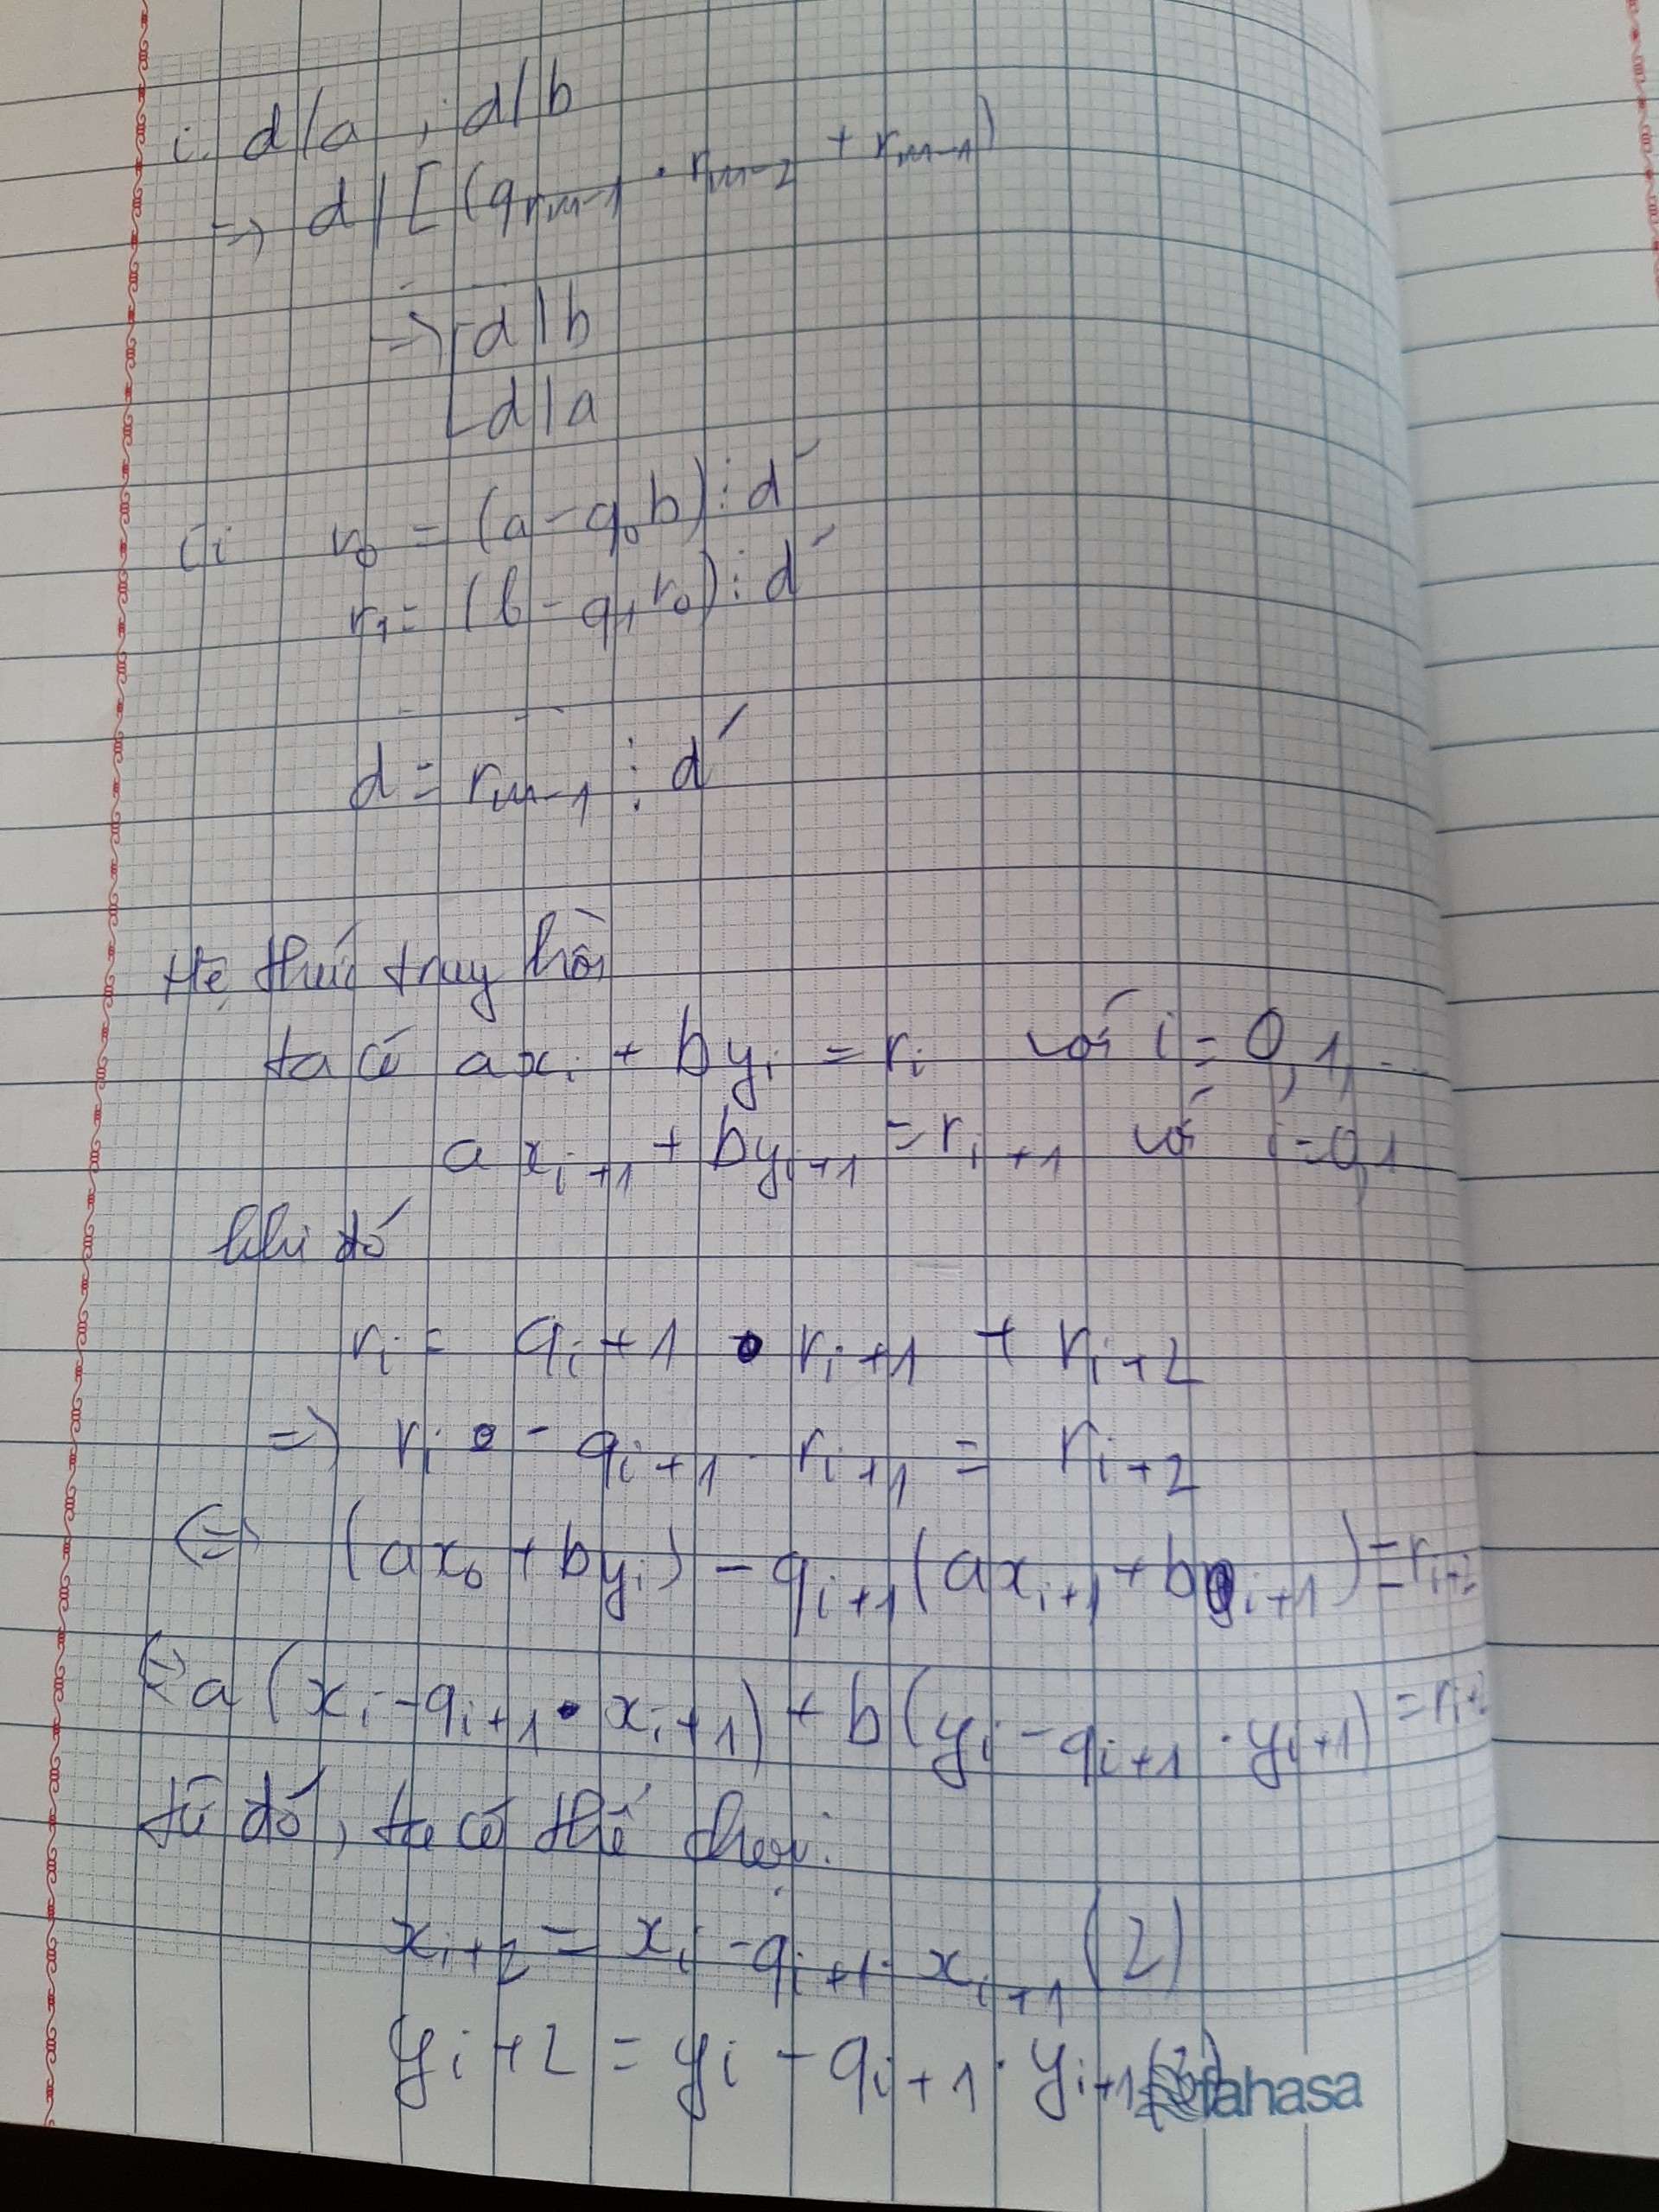 i. d|a , d|b
=> d | [ (q_{m-1} . r_{m-2} + r_{m-1})
=> [ d|b
d|a
ii r₀ = (a - q₀b) ⋮ d'
r₁ = (b - q₁r₀) ⋮ d'
d = r_{m-1} ⋮ d'
Hệ thức truy hồi
ta có ax_i + by_i = r_i với i = 0,1,...
ax_{i+1} + by_{i+1} = r_{i+1} với i=0,1
khi đó
r_i = q_{i+1} • r_{i+1} + r_{i+2}
=> r_i - q_{i+1} . r_{i+1} = r_{i+2}
<=> (ax₀ + by_i) - q_{i+1}(ax_{i+1} + by_{i+1}) = r_{i+2}
<=> a(x_i - q_{i+1} • x_{i+1}) + b(y_i - q_{i+1} . y_{i+1}) = r_{i+2}
từ đó, ta có thể chọn:
x_{i+2} = x_i - q_{i+1} . x_{i+1} (2)
y_{i+2} = y_i - q_{i+1} . y_{i+1} (3)
fahasa